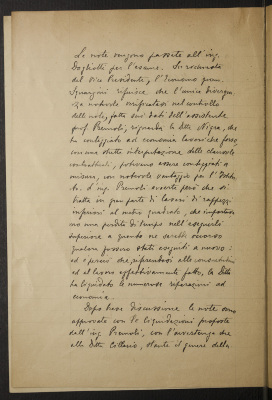 Le note vengono passate all'ing.
Dogliotti per l'esame. In assenza
del Vice Presidente, l'Economo geom.
riferisce, che l'unica divergen-
za notevole nel controllo
delle note, fatto sui dati dell'assistente
prof. Premoli, riguarda la Ditta Nigra, che
ha conteggiato ad economia lavori che forse
con una stretta interpretazione delle clausole
contrattuali, potevano essere conteggiati a
misura, con notevole vantaggio per l'Istitu-
to. L'ing. Premoli avverte però che si
tratta in gran parte di lavori di rappezzi
inferiori al metro quadrato, che importano
una perdita di tempo nell'eseguirli
superiore a quanto ne sarebbe occorso
qualora fossero stati eseguiti a nuovo:
ed è perciò che, riferendosi alle consuetudini
ed al lavoro effettivamente fatto, la Ditta
ha liquidato le numerose riparazioni ad
economia.
Dopo breve discussione le note sono
approvate con le liquidazioni proposte
dall'ing. Premoli, con l'avvertenza che
alla Ditta, stante il genere della